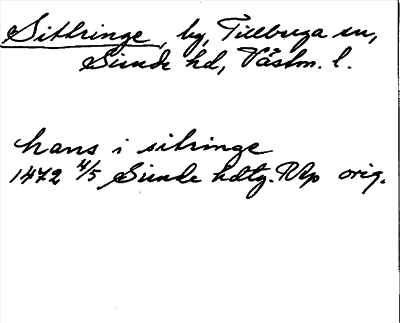 Sittringe, by, Tillberga sn,
Siende hd, Västm. l.
hans i sitringe
1472 4/5 Siende hdtg. RAp orig.